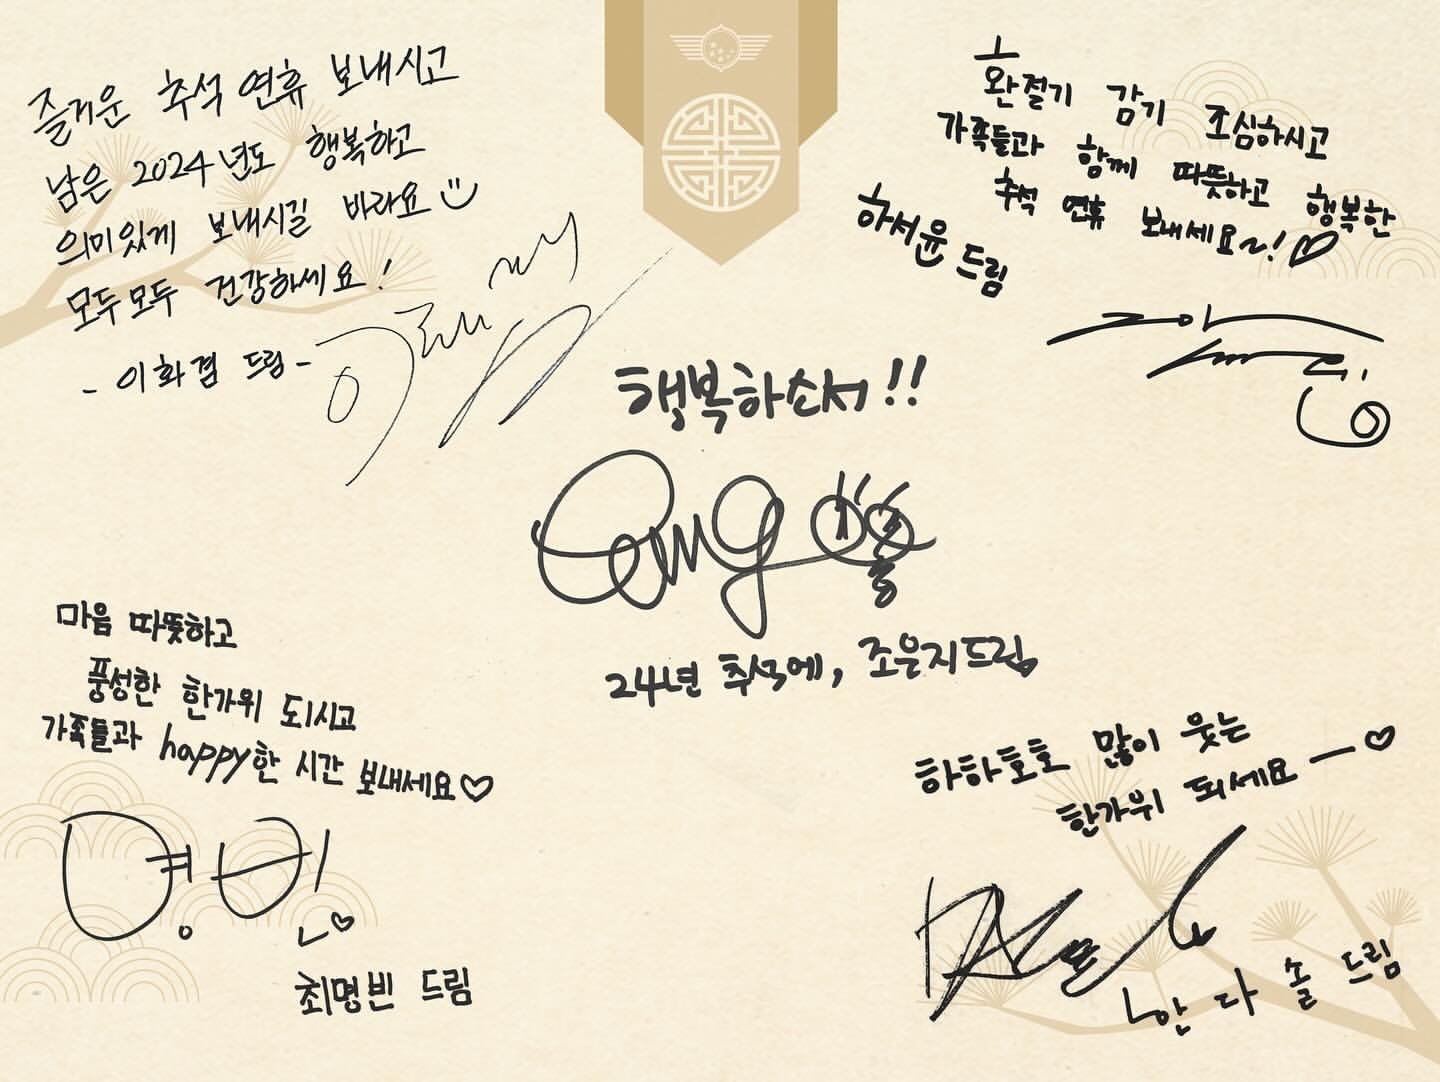 즐거운 추석 연휴 보내시고
남은 2024년도 행복하고
의미있게 보내시길 바라요
모두모두 건강하세요!
- 이화겸 드림 -
환절기 감기 조심하시고
가족들과 함께 따뜻하고 행복한
추석 연휴 보내세요~!♡
하서윤 드림
행복하소서!!
24년 추석에, 조은지드림
마음 따뜻하고
풍성한 한가위 되시고
가족들과 happy한 시간 보내세요♡
명빈
최명빈 드림
하하호호 많이 웃는
한가위 되세요 ―♡
안다솔 드림